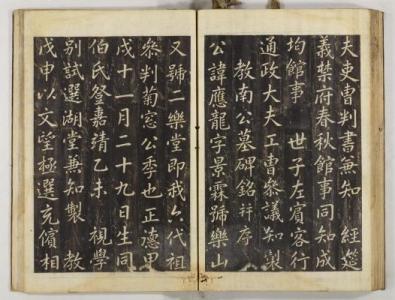 夫吏曹判書兼知 經筵
義禁府春秋館事同知成
均館事 世子左賓客行
通政大夫工曹叅議知製
教南公墓碑銘并序
公諱應龍字景霖號樂山
又號二樂堂即我六代祖
叅判菊窓公季也正德甲
戌十一月二十九日生同
伯氏登嘉靖乙未 視學
別試選湖堂兼知製 教
戊申以文望極選充儐相